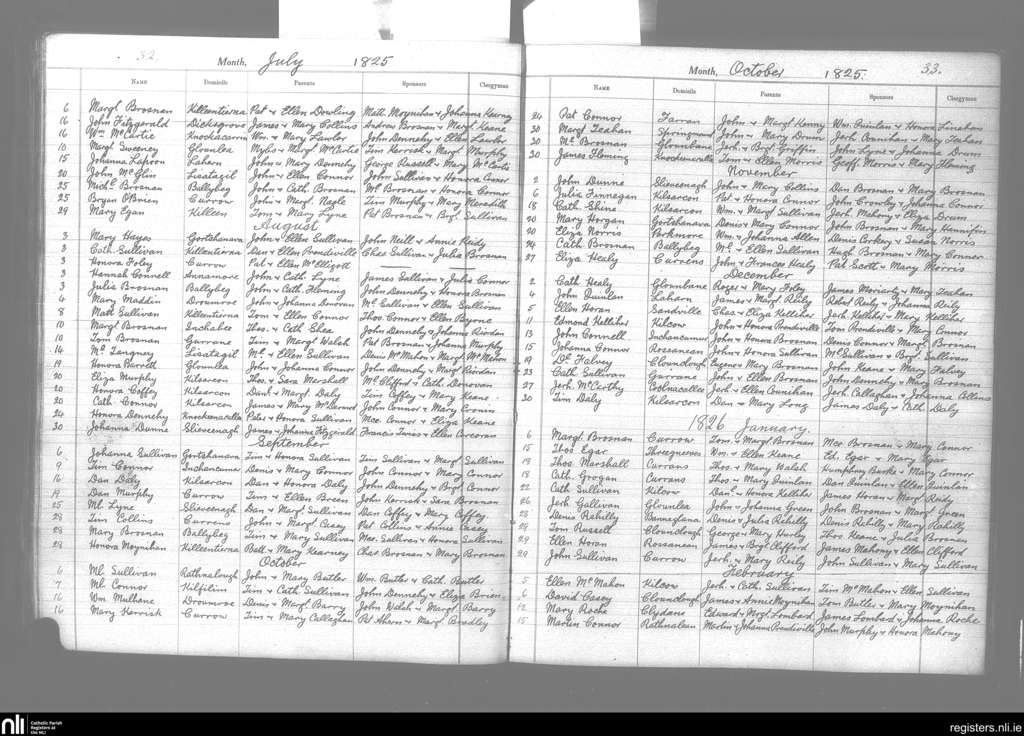 32.
Month, July 1825
Name Domicile Parents Sponsors Clergyman
6 Margt Brosnan Killeentierna Pat + Ellen Dowling Matt Moynihan + Johanna Kearney
16 John Fitzgerald Dicksgrove James + Mary Collins Andrew Brosnan + Margt Keane
16 Wm McCartie Knockacarrin Wm + Mary Lawlor John Dennehy + Ellen Lawlor
10 Margt Sweeney Glounlea Myles + Margt McCartie Tim Kerrisk + Margt Murphy
15 Johanna Laharn John + Mary Dennehy George Russell + Mary McCartie
20 John McGlin Lisatagil John + Ellen Connor John Sullivan + Honora Connor
25 Michl Brosnan Ballybeg John + Cath Brosnan Ml Brosnan + Honora Connor
25 Bryan O'Brien Currow John + Margt Nagle Tim Murphy + Mary Meredith
29 Mary Egan Killeen Tom + Mary Lyne Pat Brosnan + Bgt Sullivan
August
3 Mary Hayes Gortshanavo John + Ellen Sullivan John Neill + Annie Reidy
3 Cath Sullivan Killentierna Dan + Ellen Prendiville Chas Sullivan + Julia Brosnan
3 Honora Foley Currow Pat + Ellen McElligott
3 Hannah Connell Annamore John + Cath Lyne James Sullivan + Julia Connor
3 Julia Brosnan Ballybeg John + Cath Fleming John Dennehy + Honora Brosnan
4 Mary Maddin Droumroe John + Johanna Ml Sullivan + Ellen Sullivan
8 Matt Sullivan Killentierna Tom + Ellen Connor Thos Connor + Ellen
10 Margt Brosnan Inchabee Thos + Cath Shea John Dennehy + Johanna Riordan
10 Tom Brosnan Gurrane Tim + Margt Walsh Pat Brosnan + Johanna Murphy
14 Ml Tangney Lisatagil Ml + Ellen Sullivan Denis McMahon + Margt McMahon
19 Honora Barrett Glounlea John + Johanna Connor John Dennehy + Margt Riordan
20 Eliza Murphy Kilsarcon Thos + Sara Marshall Ml Clifford + Cath Donovan
20 Honora Coffey Kilsarcon Danl + Margt Daly Tim Coffey + Mary Keane
20 Cath Connor Kilsarcon James + Mary McDermot John Connor + Mary Cronin
24 Honora Dennehy Knockenavalla Peter + Honora Sullivan Mce Connor + Eliza Keane
30 Johanna Dunne Slieveenagh James + Johanna Fitzgerald Francis Twiss + Ellen Corcoran
September
6 Johanna Sullivan Gortshanavo Tim + Honora Sullivan Tim Sullivan + Margt Sullivan
9 Tim Connor Inchancumer Denis + Mary Connor John Connor + Mary Connor
16 Dan Daly Kilsarcon Dan + Honora Daly John Dennehy + Bgt Connor
19 Dan Murphy Currow Tim + Ellen Breen John Kerrisk + Sara Brosnan
25 Ml Lyne Slieveenagh Dan + Margt Sullivan Dan Coffey + Mary Coffey
28 Tim Collins Currens John + Margt Casey Pat Collins + Annie Casey
28 Mary Brosnan Ballybeg Tim + Mary Sullivan Mce Sullivan + Honora Sullivan
29 Honora Moynihan Killeentierna Batt + Mary Kearney Chas Brosnan + Mary Brosnan
October
6 Ml Sullivan Rathnalough John + Mary Butler Wm Butler + Cath Butler
7 Ml Connor Kilfilim Tim + Cath Sullivan John Dennehy + Eliza Brien
16 Wm Mulhane Droumroe Denis + Margt Barry John Walsh + Margt Barry
16 Mary Kerrisk Currow Tim + Mary Callaghan Pat Ahern + Margt Bradley
33.
Month, October 1825.
Name Domicile Parents Sponsors Clergyman
24 Pat Connor Farran John + Margt Kenny Wm Quinlan + Honora Linehan
30 Margt Leahan Springmount John + Mary Drum Jerh Counihan + Mary Leahan
30 Ml Brosnan Glounbane Jerh + Bgt Griffin John Lyne + Johanna Drum
30 James Fleming Knockenavalla Tom + Ellen Morris Geoff Morris + Mary Fleming
November
2 John Dunne Slieveenagh John + Mary Collins Dan Brosnan + Mary Brosnan
6 Julia Finnegan Kilsarcon Pat + Honora Connor John Crowley + Johanna Connor
18 Cath Shine Kilsarcon Wm + Margt Sullivan Jerh Mahony + Eliza Drum
20 Mary Horgan Gortshanavo Denis + Mary Connor John Brosnan + Mary
20 Eliza Norris Parkmore Wm + Johanna Allen Denis Corkery + Susan Norris
24 Cath Brosnan Ballybeg Ml + Ellen Sullivan Hugh Brosnan + Mary Connor
27 Eliza Healy Currens John + Frances Healy Pat Scott + Mary Morris
December
2 Cath Healy Glounbane Roger + Mary Foley James Moriarty + Mary Leahan
4 John Quinlan Laharn James + Margt Reidy Robert Reidy + Johanna Reidy
5 Ellen Horan Sandville Chas + Eliza Kelliher Jerh Kelliher + Mary Kelliher
11 Edmond Kelliher Kilcow John + Honora Prendiville Tom Prendiville + Mary Connor
13 John Connell Inchancumer John + Honora Brosnan Denis Connor + Margt Brosnan
15 Johanna Connor Rossanean John + Honora Sullivan Ml Sullivan + Bgt Sullivan
19 Dl Halvey Cloundough Eugene + Mary Brosnan John Keane + Mary Halvey
23 Cath Sullivan Gurrane John + Ellen Brosnan John Dennehy + Mary Brosnan
27 Jerh McCarthy Colmacallee Jerh + Ellen Counihan Jerh Callaghan + Johanna Collins
30 Tim Daly Kilsarcon Dan + Mary Long James Daly + Cath Daly
1826 January.
6 Margt Brosnan Currow Tom + Margt Brosnan Mce Brosnan + Mary Connor
15 Thos Egar Threegneeves Wm + Ellen Keane Ed. Egar + Mary Egar
18 Thos Marshall Currans Thos + Mary Walsh Humphry Burke + Mary Connor
18 Cath Grogan Currans Thos + Mary Quinlan Dan Quinlan + Ellen Quinlan
22 Cath Sullivan Kilcow Danl + Honora Kelliher James Horan + Margt Reidy
26 Jerh Gallivan Glounlea John + Johanna Green John Brosnan + Margt Green
28 Denis Rahilly Denis + Julia Rahilly Denis Rahilly + Mary Rahilly
29 Tom Russell Cloundlough George + Mary Hurley Thos Keane + Julia Brosnan
29 Ellen Horan Rossanean James + Bgt Clifford James Mahony + Ellen Clifford
29 John Sullivan Currow Jerh + Mary Reidy John Sullivan + Mary Sullivan
February
5 Ellen McMahon Kilcow Jerh + Cath Sullivan Tim McMahon + Ellen Sullivan
6 David Casey Cloundlough James + Annie Moynihan Tom Butler + Mary Moynihan
12 Mary Roche Clydane Edward + Margt Lombard James Lombard + Johanna Roche
15 Martin Connor Rathnalean Martin + Johanna Prendiville John Murphy + Honora Mahony
nli
Catholic Parish Registers at the NLI
registers.nli.ie